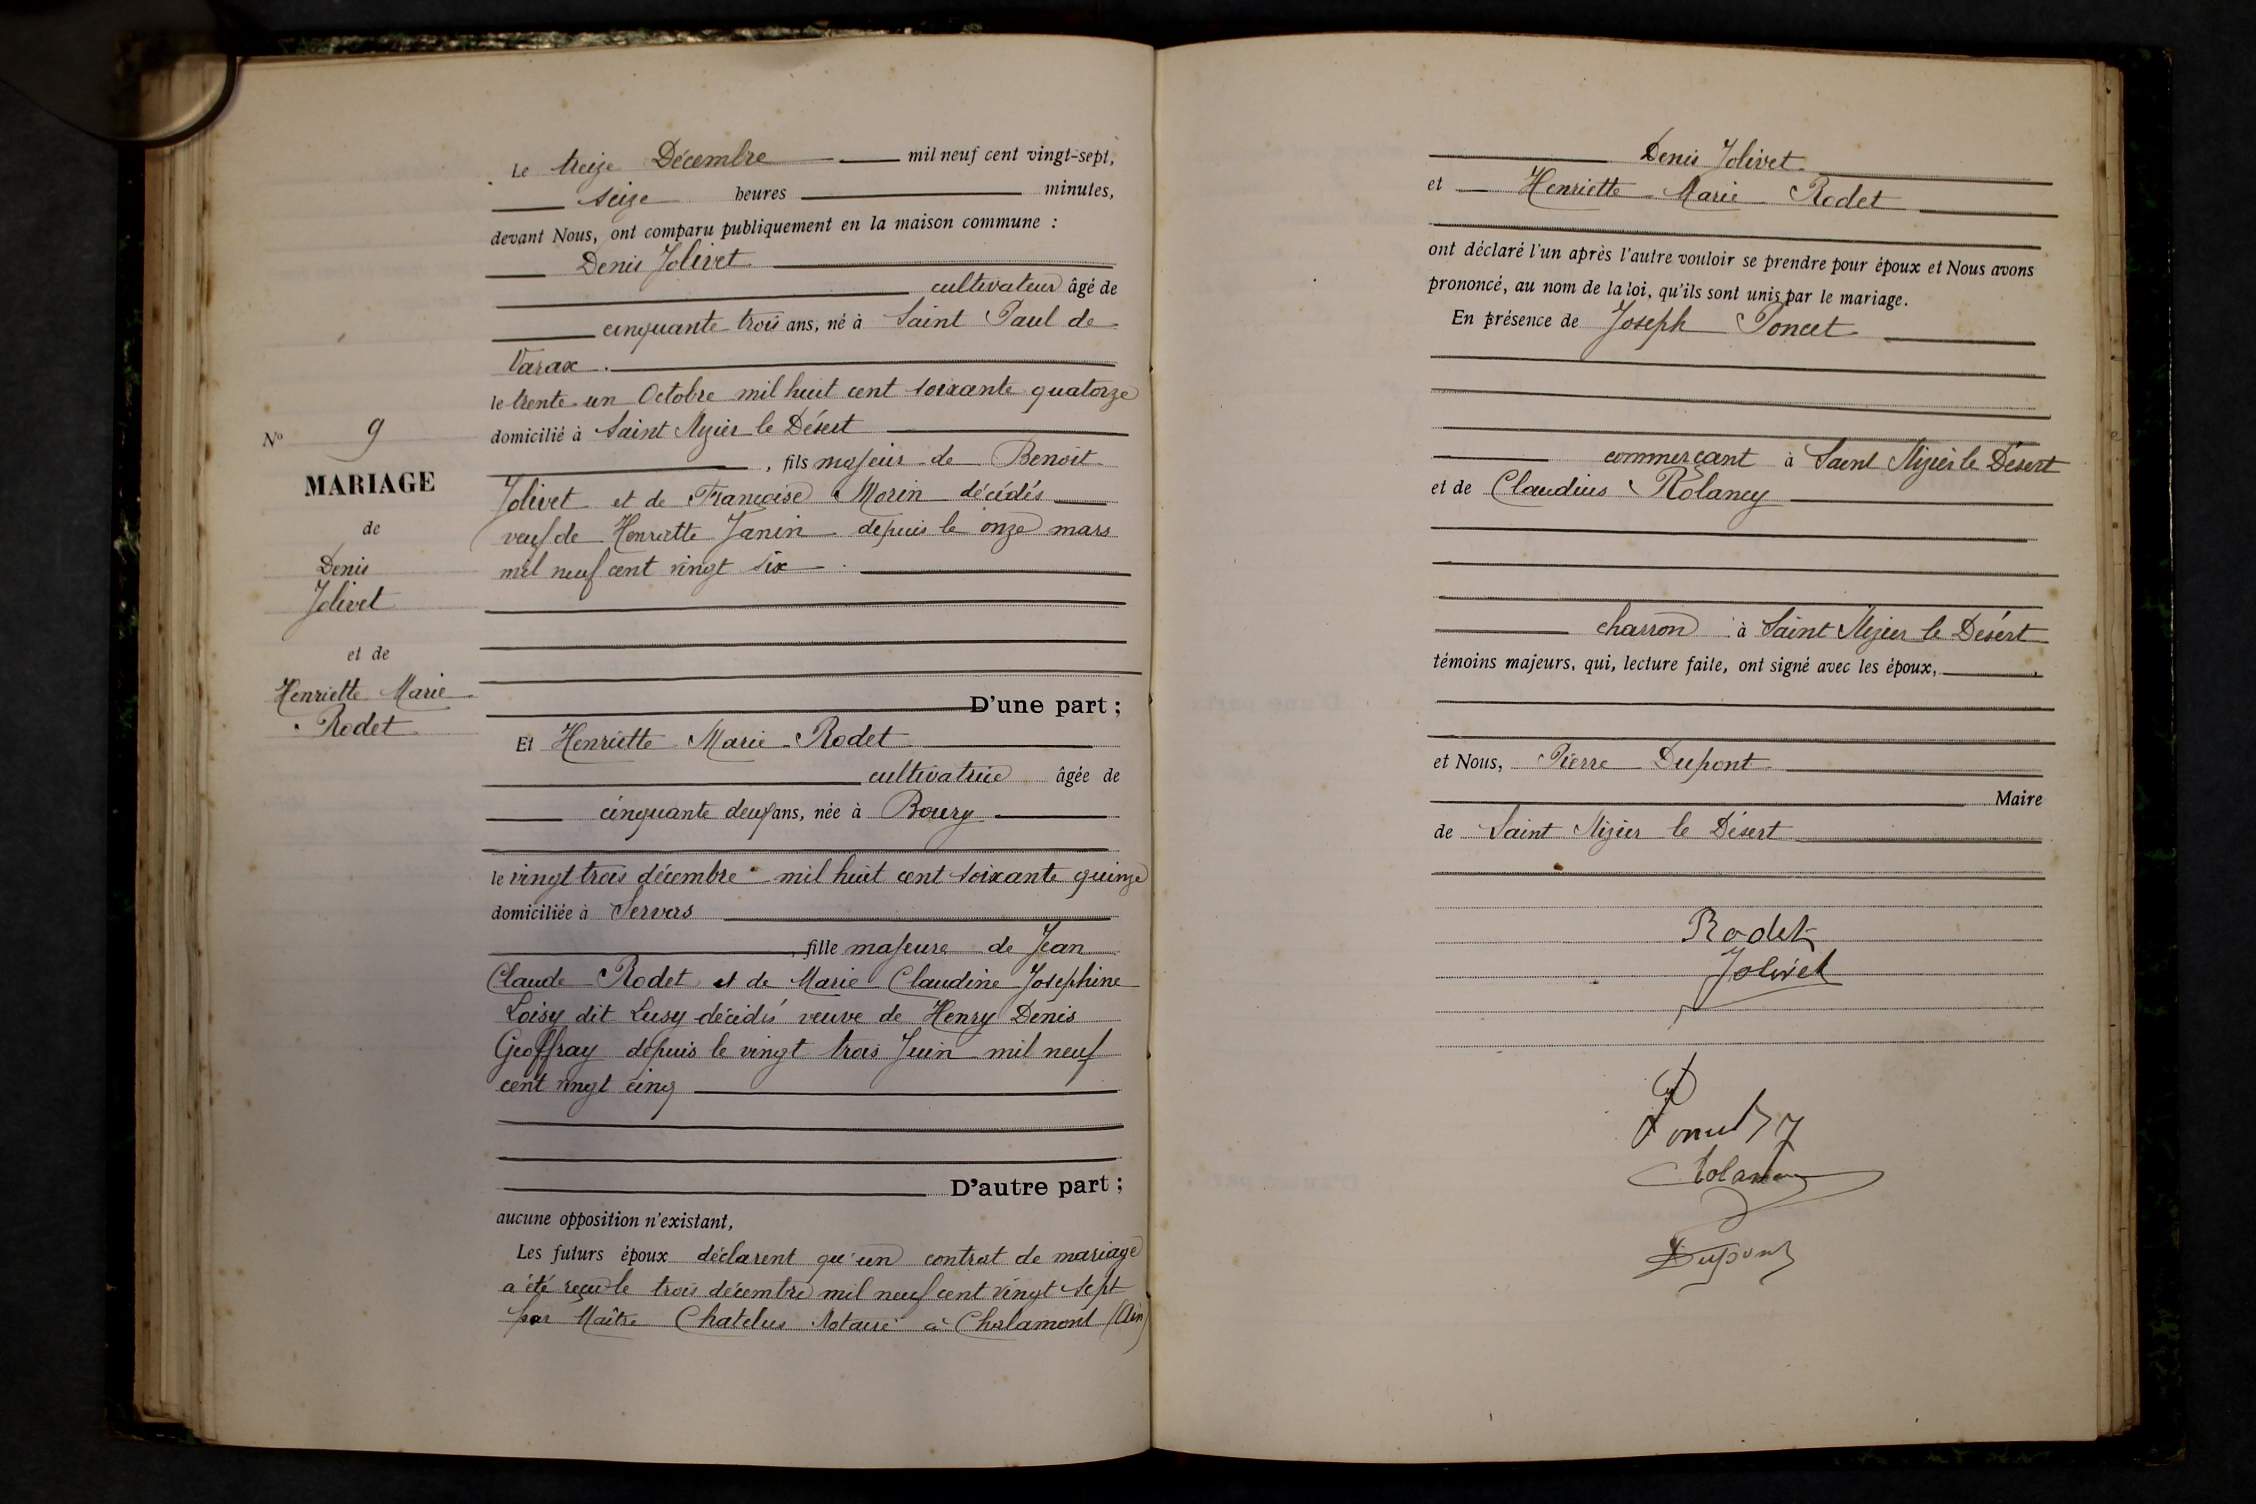 Le treize Décembre mil neuf cent vingt-sept,
seize heures minutes,
devant Nous, ont comparu publiquement en la maison commune :
Denis Jolivet
cultivateur âgé de
cinquante trois ans, né à Saint Paul de
Varax.
le trente un Octobre mil huit cent soixante quatorze
domicilié à Saint Nizier le Désert
, fils majeur de Benoit
Jolivet et de Françoise Morin décédés
veuf de Henriette Janin depuis le onze mars
mil neuf cent vingt six.
D'une part ;
Et Henriette Marie Rodet
cultivatrice âgée de
cinquante deux ans, née à Bourg
le vingt trois décembre mil huit cent soixante quinze
domiciliée à Servas
, fille majeure de Jean
Claude Rodet et de Marie Claudine Josephine
Loisy dit Lusy décédés veuve de Henry Denis
Geoffray depuis le vingt trois Juin mil neuf
cent vingt cinq
D'autre part ;
aucune opposition n'existant,
Les futurs époux déclarent qu'un contrat de mariage
a été reçu le trois décembre mil neuf cent vingt sept
par Maître Chatelus Notaire à Chalamont (Ain)
N° 9
MARIAGE
de
Denis
Jolivet
et de
Henriette Marie
Rodet
Denis Jolivet
et Henriette Marie Rodet
ont déclaré l'un après l'autre vouloir se prendre pour époux et Nous avons
prononcé, au nom de la loi, qu'ils sont unis par le mariage.
En présence de Joseph Poncet
commerçant à Saint Nizier le Désert
et de Claudius Rolancy
charron à Saint Nizier le Désert
témoins majeurs, qui, lecture faite, ont signé avec les époux,
et Nous, Pierre Dupont
Maire
de Saint Nizier le Désert
Rodet
Jolivet
Dupont